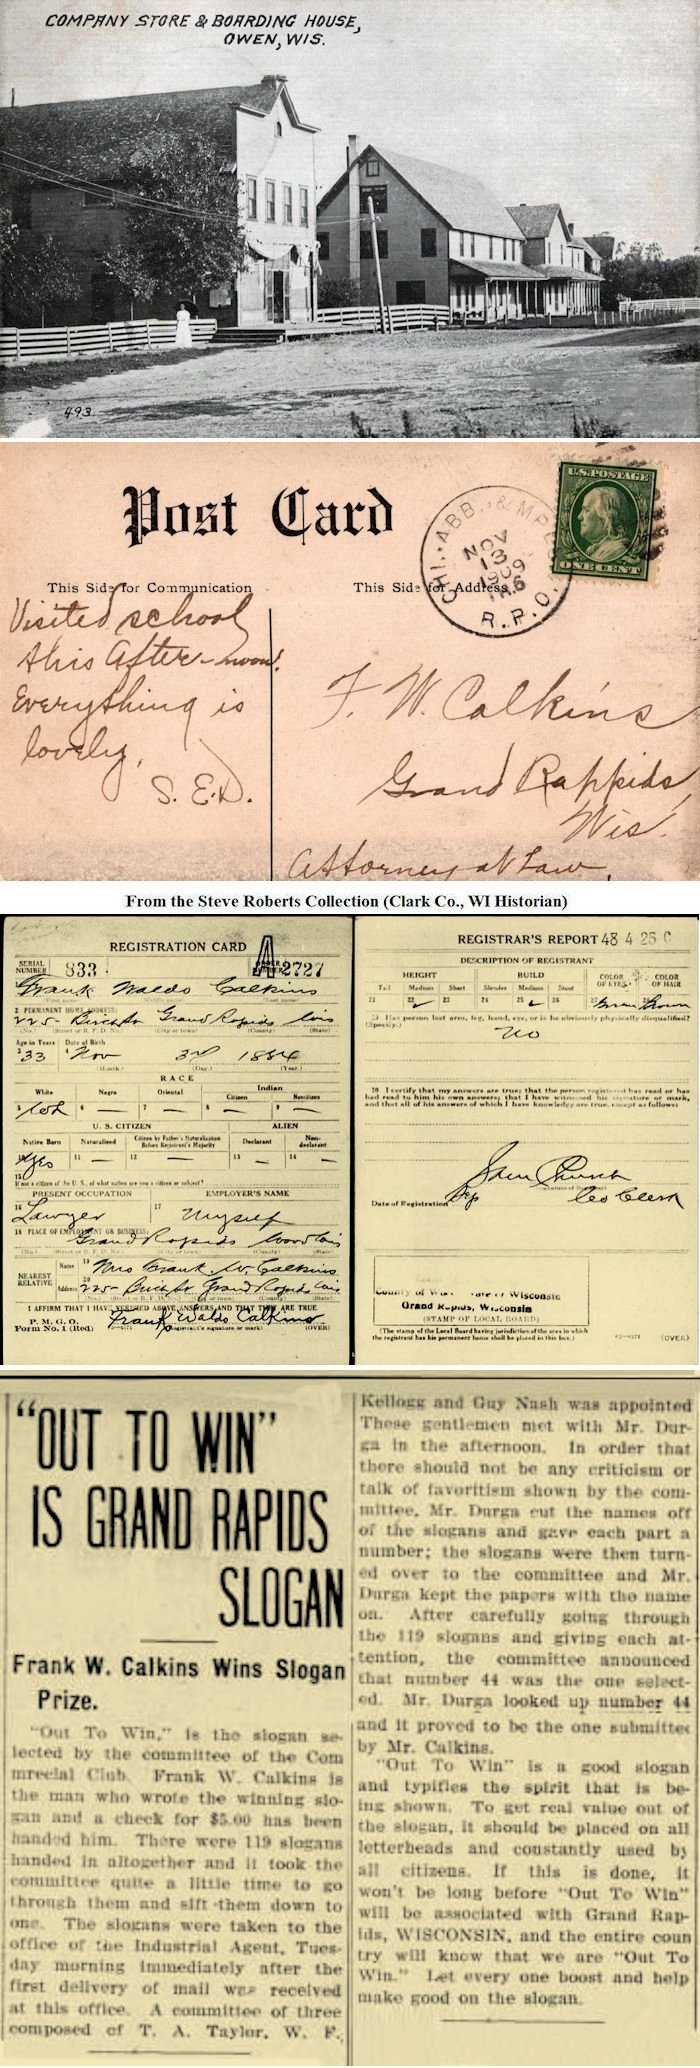 COMPANY STORE & BOARDING HOUSE,
OWEN, WIS.
493
Post Card
This Side for Communication
This Side for Address
CHI., ABB. & MPLS
NOV
13
1909
R.P.O.
U.S. POSTAGE
ONE CENT
Visited school
this After-noon.
Everything is
lovely.
S. E. D.
F. W. Calkins
Grand Rappids,
Wis.
Attorney at Law.
From the Steve Roberts Collection (Clark Co., WI Historian)
REGISTRATION CARD
SERIAL NUMBER 833
A 2727
Frank Waldo Calkins
2 PERMANENT HOME ADDRESS:
225 Birch St Grand Rapids Wis
(No.) (Street or R. F. D. No.) (City or town) (County) (State)
Age in Years Date of Birth
3 33 4 Nov 3rd 1884
(Month.) (Day.) (Year.)
RACE
White Negro Oriental Indian
Citizen Noncitizen
5 Wh 6 — 7 — 8 — 9 —
U. S. CITIZEN ALIEN
Native Born Naturalized Citizen by Father's Naturalization Before Registrant's Majority Declarant Non-declarant
10 Yes 11 — 12 — 13 — 14 —
15
If not a citizen of the U. S., of what nation are you a citizen or subject?
PRESENT OCCUPATION EMPLOYER'S NAME
16 Lawyer 17 Myself
18 PLACE OF EMPLOYMENT OR BUSINESS:
Grand Rapids Wood Wis
(No.) (Street or R. F. D. No.) (City or town) (County) (State)
NEAREST RELATIVE
Name 19 Mrs Frank W. Calkins
Address 20 225 Birch St Grand Rapids Wis
(No.) (Street or R. F. D. No.) (City or town) (County) (State)
I AFFIRM THAT I HAVE VERIFIED ABOVE ANSWERS AND THAT THEY ARE TRUE
P. M. G. O.
Form No. 1 (Red) Frank Waldo Calkins
(Registrant's signature or mark) (OVER)
REGISTRAR'S REPORT 48 4 25 C
DESCRIPTION OF REGISTRANT
HEIGHT BUILD COLOR OF EYES COLOR OF HAIR
Tall Medium Short Slender Medium Stout
21 22 ✓ 23 24 25 ✓ 26 27 Brown
29 Has person lost arm, leg, hand, eye, or is he obviously physically disqualified?
(Specify.)
no
30 I certify that my answers are true; that the person registered has read or has
had read to him his own answers; that I have witnessed his signature or mark,
and that all of his answers of which I have knowledge are true, except as follows:
Sam Church
Date of Registration Dep Co Clerk
Grand Rapids, Wisconsin
(STAMP OF LOCAL BOARD)
(The stamp of the Local Board having jurisdiction of the area in which
the registrant has his permanent home shall be placed in this box.) (OVER)
"OUT TO WIN"
IS GRAND RAPIDS
SLOGAN
Frank W. Calkins Wins Slogan
Prize.
"Out To Win," is the slogan se-
lected by the committee of the Com
mrecial Club. Frank W. Calkins is
the man who wrote the winning slo-
gan and a check for $5.00 has been
handed him. There were 119 slogans
handed in altogether and it took the
committee quite a little time to go
through them and sift them down to
one. The slogans were taken to the
office of the Industrial Agent, Tues-
day morning immediately after the
first delivery of mail was received
at this office. A committee of three
composed of T. A. Taylor, W. F.
Kellogg and Guy Nash was appointed
These gentlemen met with Mr. Dur-
ga in the afternoon. In order that
there should not be any criticism or
talk of favoritism shown by the com-
mittee, Mr. Durga cut the names off
of the slogans and gave each part a
number; the slogans were then turn-
ed over to the committee and Mr.
Durga kept the papers with the name
on. After carefully going through
the 119 slogans and giving each at-
tention, the committee announced
that number 44 was the one select-
ed. Mr. Durga looked up number 44
and it proved to be the one submitted
by Mr. Calkins.
"Out To Win" is a good slogan
and typifies the spirit that is be-
ing shown. To get real value out of
the slogan, it should be placed on all
letterheads and constantly used by
all citizens. If this is done, it
won't be long before "Out To Win"
will be associated with Grand Rap-
ids, WISCONSIN, and the entire coun
try will know that we are "Out To
Win." Let every one boost and help
make good on the slogan.